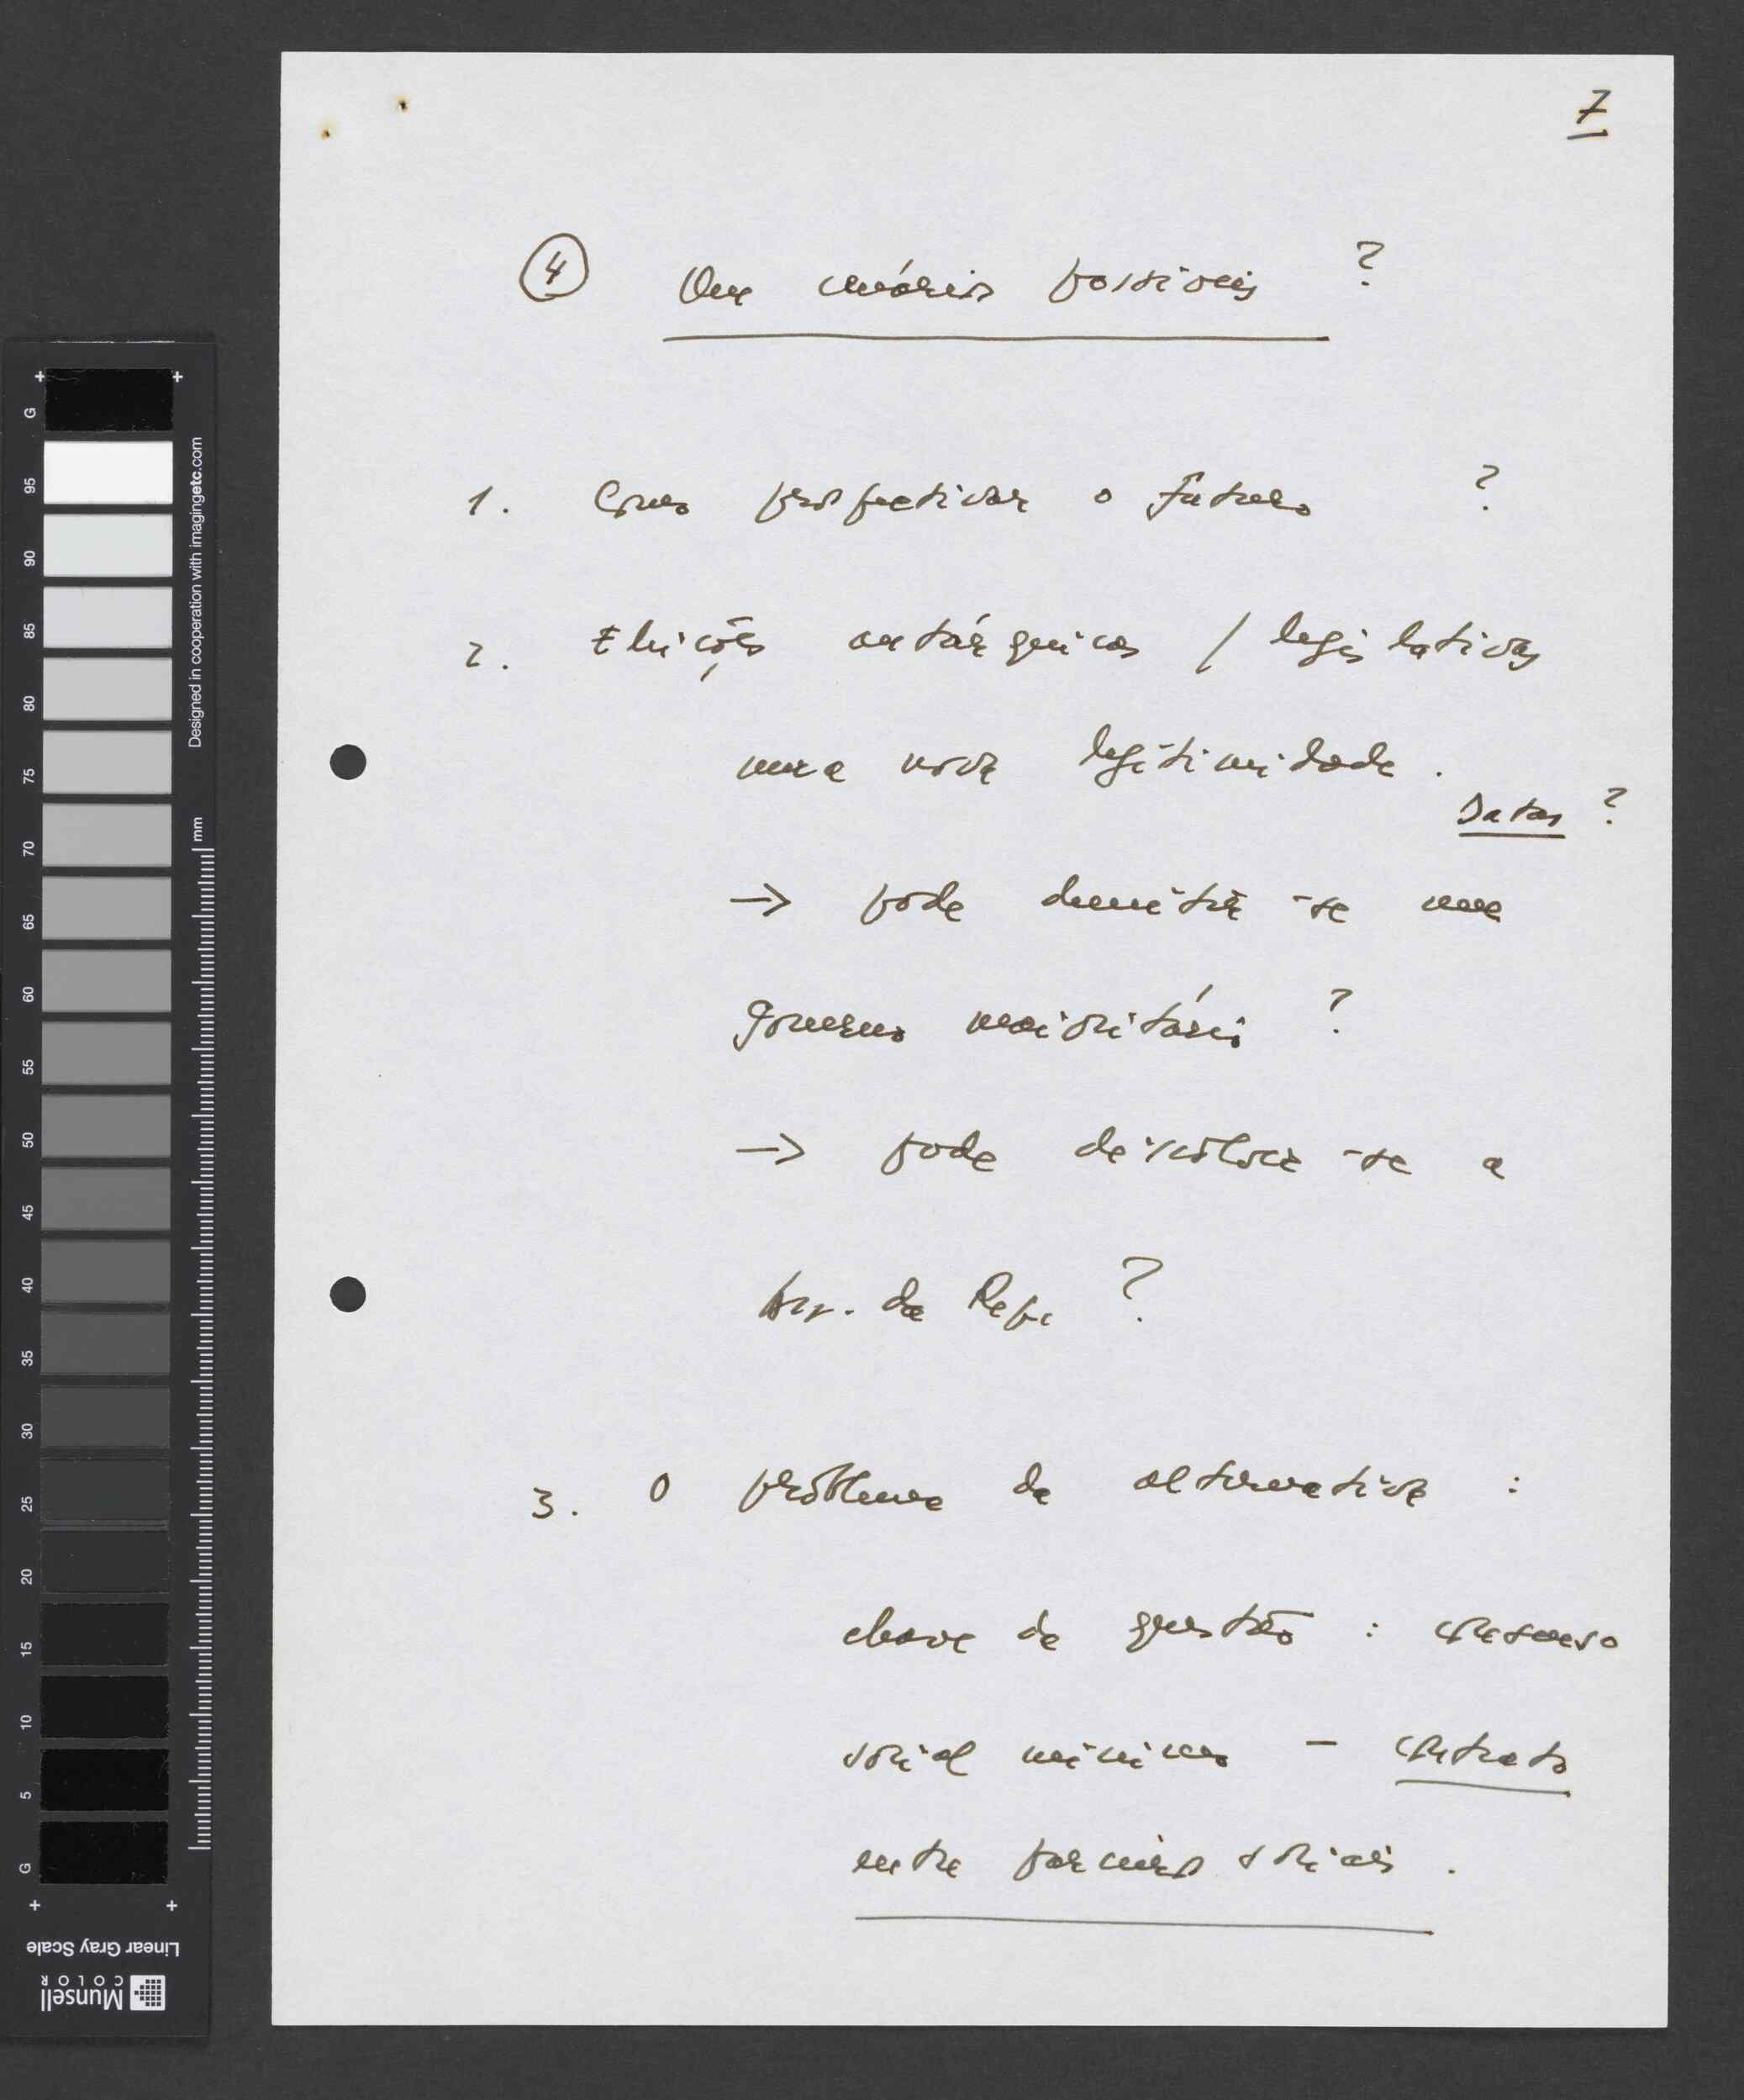 7
4 Que cenários possíveis ?
1. Como prospectivar o futuro ?
2. Eleições autárquicas / legislativas
uma nova legitimidade.
Datas ?
→ pode demitir-se um
governo maioritário ?
→ pode dissolver-se a
Ass. da Rep. ?
3. O problema da alternativa :
chave da questão : consenso
social mínimo – contrato
entre parceiros sociais.
+ +
G
95
90
85
80
75
70
65
60
55
50
45
40
35
30
25
20
15
10
5
G
+ +
Designed in cooperation with imagingetc.com
mm
Linear Gray Scale
Munsell
COLOR